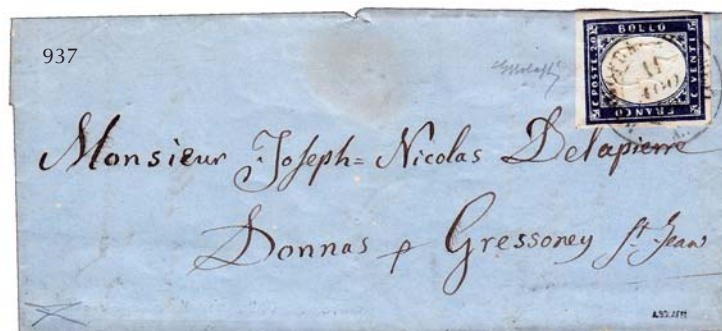 937
BOLLO
C. POSTE. 20
C. VENTI
FRANCO
11
Monsieur Joseph=Nicolas Delapierre
Donnas p Gressoney St. Jean